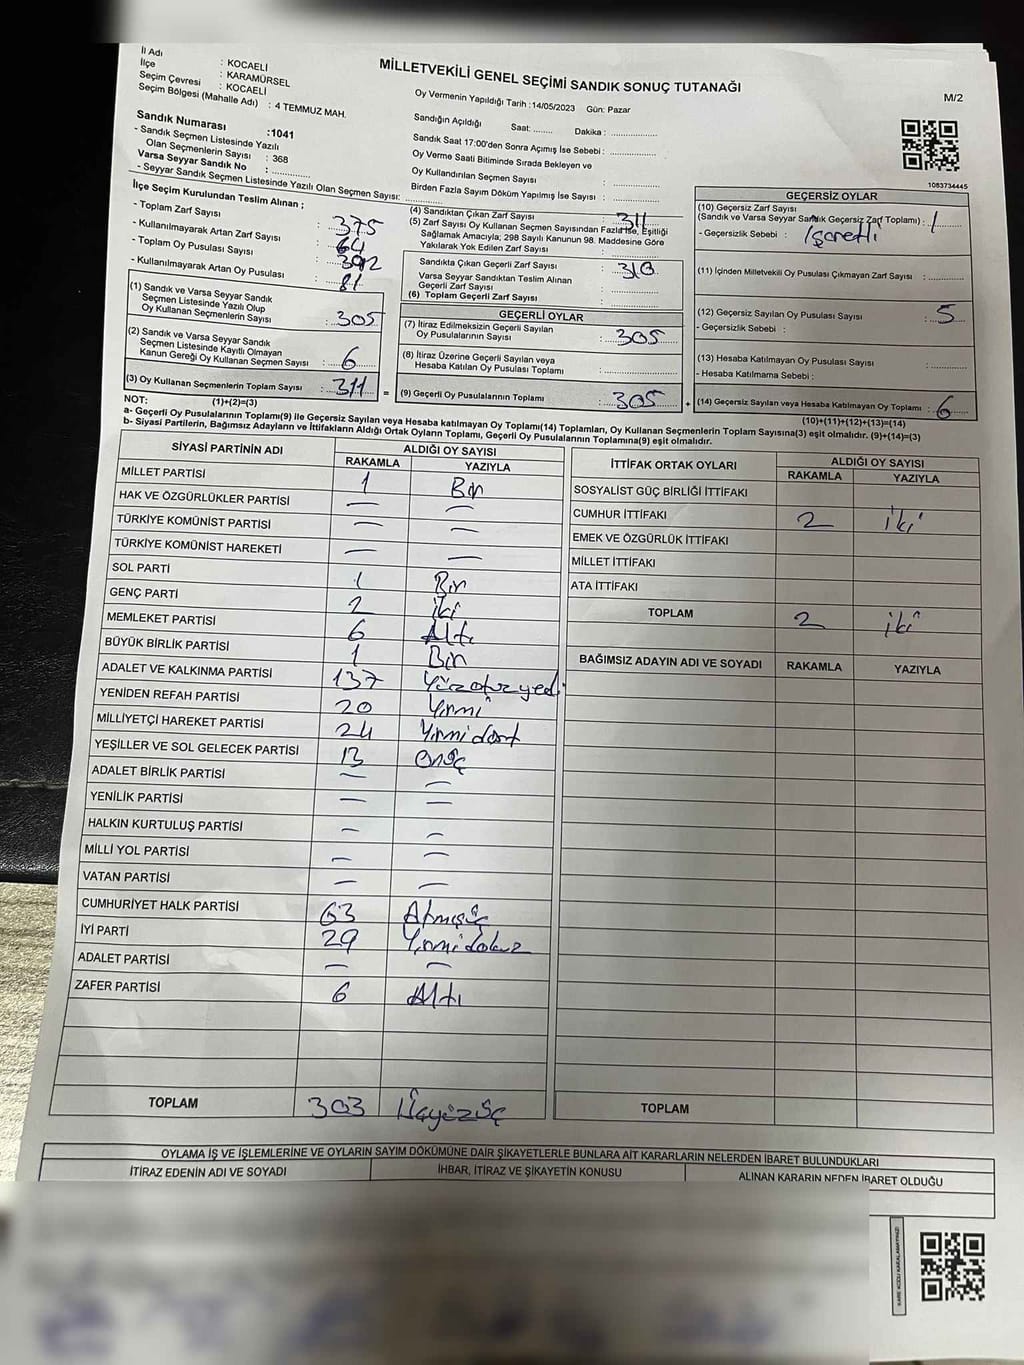 MİLLETVEKİLİ GENEL SEÇİMİ SANDIK SONUÇ TUTANAĞI
M/2
İl Adı : KOCAELİ
İlçe : KARAMÜRSEL
Seçim Çevresi : KOCAELİ
Seçim Bölgesi (Mahalle Adı) : 4 TEMMUZ MAH.
Sandık Numarası :1041
- Sandık Seçmen Listesinde Yazılı
Olan Seçmenlerin Sayısı : 368
Varsa Seyyar Sandık No : ..............
- Seyyar Sandık Seçmen Listesinde Yazılı Olan Seçmen Sayısı: ..............
Oy Vermenin Yapıldığı Tarih :14/05/2023 Gün: Pazar
Sandığın Açıldığı Saat: ........ Dakika : ..............
Sandık Saat 17:00'den Sonra Açımış İse Sebebi : ..............
Oy Verme Saati Bitiminde Sırada Bekleyen ve
Oy Kullandırılan Seçmen Sayısı : ..............
Birden Fazla Sayım Döküm Yapılmış İse Sayısı : ..............
1083734445
İlçe Seçim Kurulundan Teslim Alınan ;
- Toplam Zarf Sayısı : 375
- Kullanılmayarak Artan Zarf Sayısı : 64
- Toplam Oy Pusulası Sayısı : 392
- Kullanılmayarak Artan Oy Pusulası : 81
(1) Sandık ve Varsa Seyyar Sandık
Seçmen Listesinde Yazılı Olup
Oy Kullanan Seçmenlerin Sayısı : 305
(2) Sandık ve Varsa Seyyar Sandık
Seçmen Listesinde Kayıtlı Olmayan
Kanun Gereği Oy Kullanan Seçmen Sayısı : 6
(3) Oy Kullanan Seçmenlerin Toplam Sayısı : 311 =
(1)+(2)=(3)
(4) Sandıktan Çıkan Zarf Sayısı : 311
(5) Zarf Sayısı Oy Kullanan Seçmen Sayısından Fazla İse, Eşitliği
Sağlamak Amacıyla; 298 Sayılı Kanunun 98. Maddesine Göre
Yakılarak Yok Edilen Zarf Sayısı : ..............
Sandıkta Çıkan Geçerli Zarf Sayısı : 310
Varsa Seyyar Sandıktan Teslim Alınan
Geçerli Zarf Sayısı : ..............
(6) Toplam Geçerli Zarf Sayısı : ..............
GEÇERLİ OYLAR
(7) İtiraz Edilmeksizin Geçerli Sayılan
Oy Pusulalarının Sayısı : 305
(8) İtiraz Üzerine Geçerli Sayılan veya
Hesaba Katılan Oy Pusulası Toplamı : ..............
(9) Geçerli Oy Pusulalarının Toplamı : 305 +
GEÇERSİZ OYLAR
(10) Geçersiz Zarf Sayısı
(Sandık ve Varsa Seyyar Sandık Geçersiz Zarf Toplamı) : 1
- Geçersizlik Sebebi : İşaretli
(11) İçinden Milletvekili Oy Pusulası Çıkmayan Zarf Sayısı : ..............
(12) Geçersiz Sayılan Oy Pusulası Sayısı : 5
- Geçersizlik Sebebi :
(13) Hesaba Katılmayan Oy Pusulası Sayısı : ..............
- Hesaba Katılmama Sebebi :
(14) Geçersiz Sayılan veya Hesaba Katılmayan Oy Toplamı : 6
(10)+(11)+(12)+(13)=(14)
NOT:
a- Geçerli Oy Pusulalarının Toplamı(9) ile Geçersiz Sayılan veya Hesaba Katılmayan Oy Toplamı(14) Toplamları, Oy Kullanan Seçmenlerin Toplam Sayısına(3) eşit olmalıdır. (9)+(14)=(3)
b- Siyasi Partilerin, Bağımsız Adayların ve İttifakların Aldığı Ortak Oyların Toplamı, Geçerli Oy Pusulalarının Toplamına(9) eşit olmalıdır.
SİYASİ PARTİNİN ADI ALDIĞI OY SAYISI
RAKAMLA YAZIYLA
MİLLET PARTİSİ 1 Bir
HAK VE ÖZGÜRLÜKLER PARTİSİ — —
TÜRKİYE KOMÜNİST PARTİSİ — —
TÜRKİYE KOMÜNİST HAREKETİ — —
SOL PARTİ 1 Bir
GENÇ PARTİ 2 iki
MEMLEKET PARTİSİ 6 Altı
BÜYÜK BİRLİK PARTİSİ 1 Bir
ADALET VE KALKINMA PARTİSİ 137 Yüzotuzyedi
YENİDEN REFAH PARTİSİ 20 Yirmi
MİLLİYETÇİ HAREKET PARTİSİ 24 Yirmidört
YEŞİLLER VE SOL GELECEK PARTİSİ 13 Onüç
ADALET BİRLİK PARTİSİ — —
YENİLİK PARTİSİ — —
HALKIN KURTULUŞ PARTİSİ — —
MİLLİ YOL PARTİSİ — —
VATAN PARTİSİ — —
CUMHURİYET HALK PARTİSİ 63 Atmışüç
İYİ PARTİ 29 Yirmidokuz
ADALET PARTİSİ — —
ZAFER PARTİSİ 6 Altı
TOPLAM 303 Üçyüzüç
İTTİFAK ORTAK OYLARI ALDIĞI OY SAYISI
RAKAMLA YAZIYLA
SOSYALİST GÜÇ BİRLİĞİ İTTİFAKI
CUMHUR İTTİFAKI 2 iki
EMEK VE ÖZGÜRLÜK İTTİFAKI
MİLLET İTTİFAKI
ATA İTTİFAKI
TOPLAM 2 iki
BAĞIMSIZ ADAYIN ADI VE SOYADI RAKAMLA YAZIYLA
TOPLAM
OYLAMA İŞ VE İŞLEMLERİNE VE OYLARIN SAYIM DÖKÜMÜNE DAİR ŞİKAYETLERLE BUNLARA AİT KARARLARIN NELERDEN İBARET BULUNDUKLARI
İTİRAZ EDENİN ADI VE SOYADI İHBAR, İTİRAZ VE ŞİKAYETİN KONUSU ALINAN KARARIN NEDEN İBARET OLDUĞU
KARE KODU KARALAMAYINIZ!